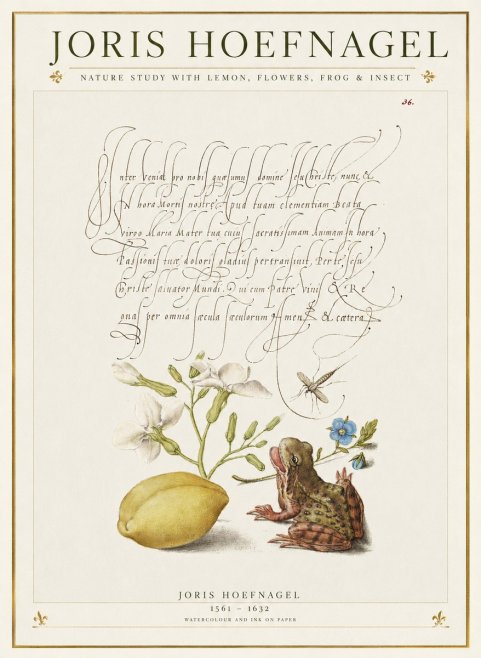 JORIS HOEFNAGEL
NATURE STUDY WITH LEMON, FLOWERS, FRØG & INSECT
36.
nter Veniat pro nobis quæsumus domine Jesu Christe, nunc &
N hora Mortis nostræ, Apud tuam clementiam Beata
Virgo Maria Mater tua cuius sacratissimam Animam in hora
Passionis tuæ doloris gladius pertransiuit. Per te Jesu
Christe saluator Mundi. Qui cum Patre viuis & Re
gnas per omnia sæcula sæculorum Amen & cætera
JORIS HOEFNAGEL
1561 – 1632
WATERCOLOUR AND INK ON PAPER